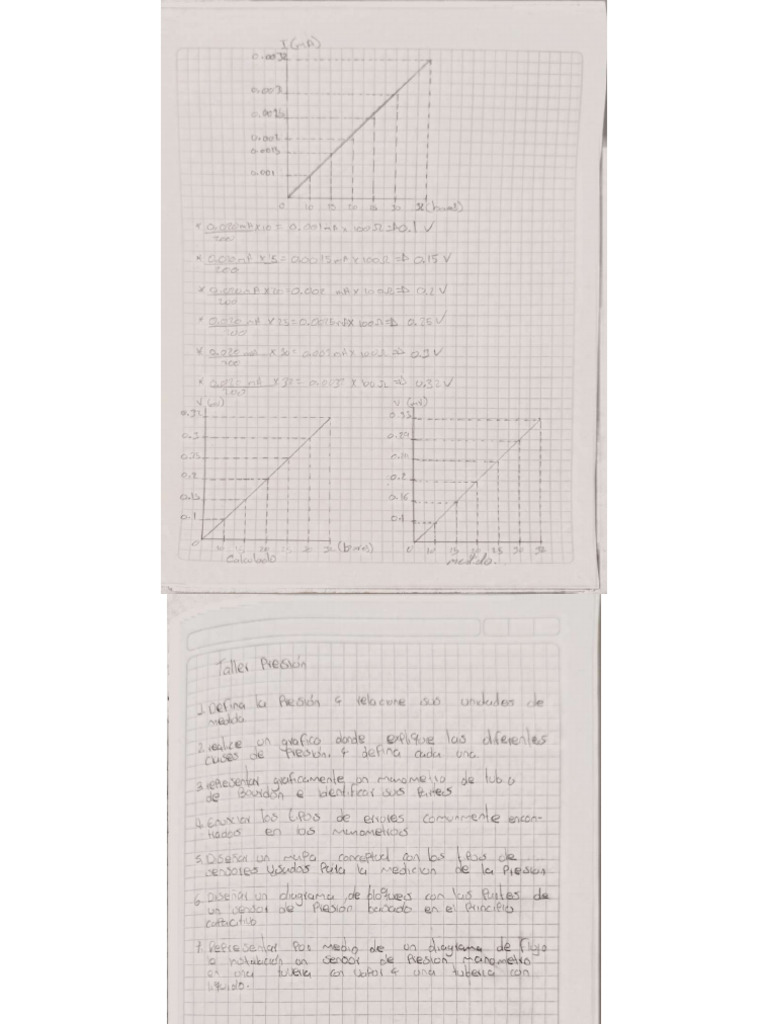 I (mA)
0.0032
0.003
0.0025
0.002
0.0015
0.001
0 10 15 20 25 30 32 (bares)
* 0.020mA x 10 = 0.001mA x 100Ω => 0.1 V
200
* 0.020mA x 15 = 0.0015mA x 100Ω => 0.15 V
200
* 0.020mA x 20 = 0.002 mA x 100Ω => 0.2 V
200
* 0.020 mA x 25 = 0.0025mA x 100Ω => 0.25 V
200
* 0.020 x 30 = 0.003mA x 100Ω => 0.3 V
200
* 0.020 mA x 32 = x 100Ω => 0.32 V
200
V (mV)
0.32
0.3
0.25
0.2
0.15
0.1
0 10 15 20 30 32 (bares)
Calculado
V (mV)
0.33
0.29
0.2
0.16
0.1
0 10 15 20 25 30 32
medido.
Taller Presión
1. Defina la Presión & relacione sus unidades de
medida
2. realice un grafico donde explique las diferentes
clases de Presion, & defina cada una.
3. representar graficamente un manometro de tubo
de Bourdon e identificar sus Partes
4. Enunciar los tipos de errores comunmente encon-
trados en los manometros
5. Diseñar un mapa conceptual con los tipos de
sensores Usados Para la medicion de la Presion
6. Diseñar un diagrama de bloques con las Partes de
un sensor de Presion basado en el Principio
capacitivo
7. Representar Por medio de un diagrama de Flujo
o instalacion un sensor de Presion manometro
en una tuberia con vapor & una tuberia con
liquido.